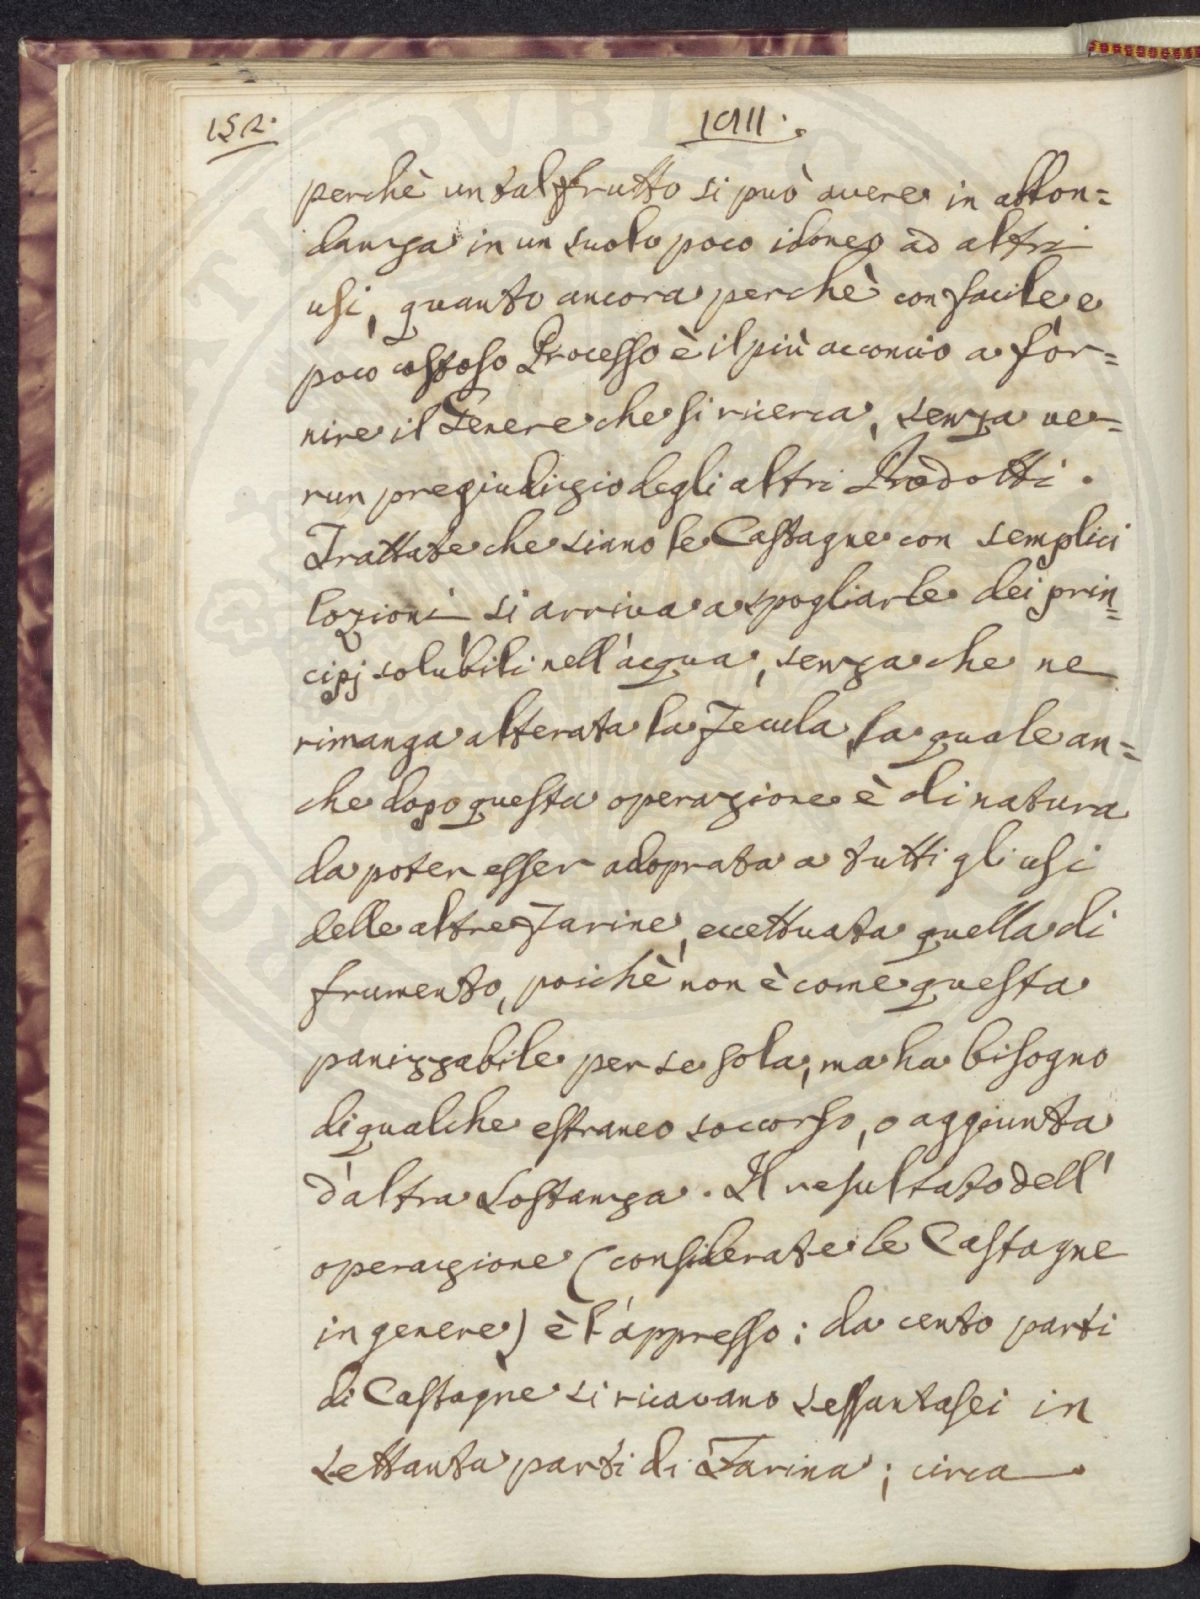 152.
1911.
perchè un tal frutto si può avere in abbon=
danza in un suolo poco idoneo ad altri
usi, quanto ancora perchè con facile, e
poco costoso Processo è il più acconcio a for=
nire il Genere che si ricerca, senza ve=
run pregiudizio degli altri Prodotti.
Trattate che siano le Castagne con semplici
lozioni si arriva a spogliarle dei prin=
cipj solubili nell'acqua, senza che ne
rimanga alterata la Fecula, la quale an=
che dopo questa operazione è di natura
da poter esser adoprata a tutti gli usi
delle altre Farine, eccettuata quella di
frumento, poichè non è come questa
panizzabile per se sola, ma ha bisogno
di qualche estraneo soccorso, o aggiunta
d'altra Sostanza. Il resultato dell'
operazione (considerate le Castagne
in genere) è l'appresso: da cento parti
di Castagne si ricavano sessantasei in
settanta parti di Farina; circa